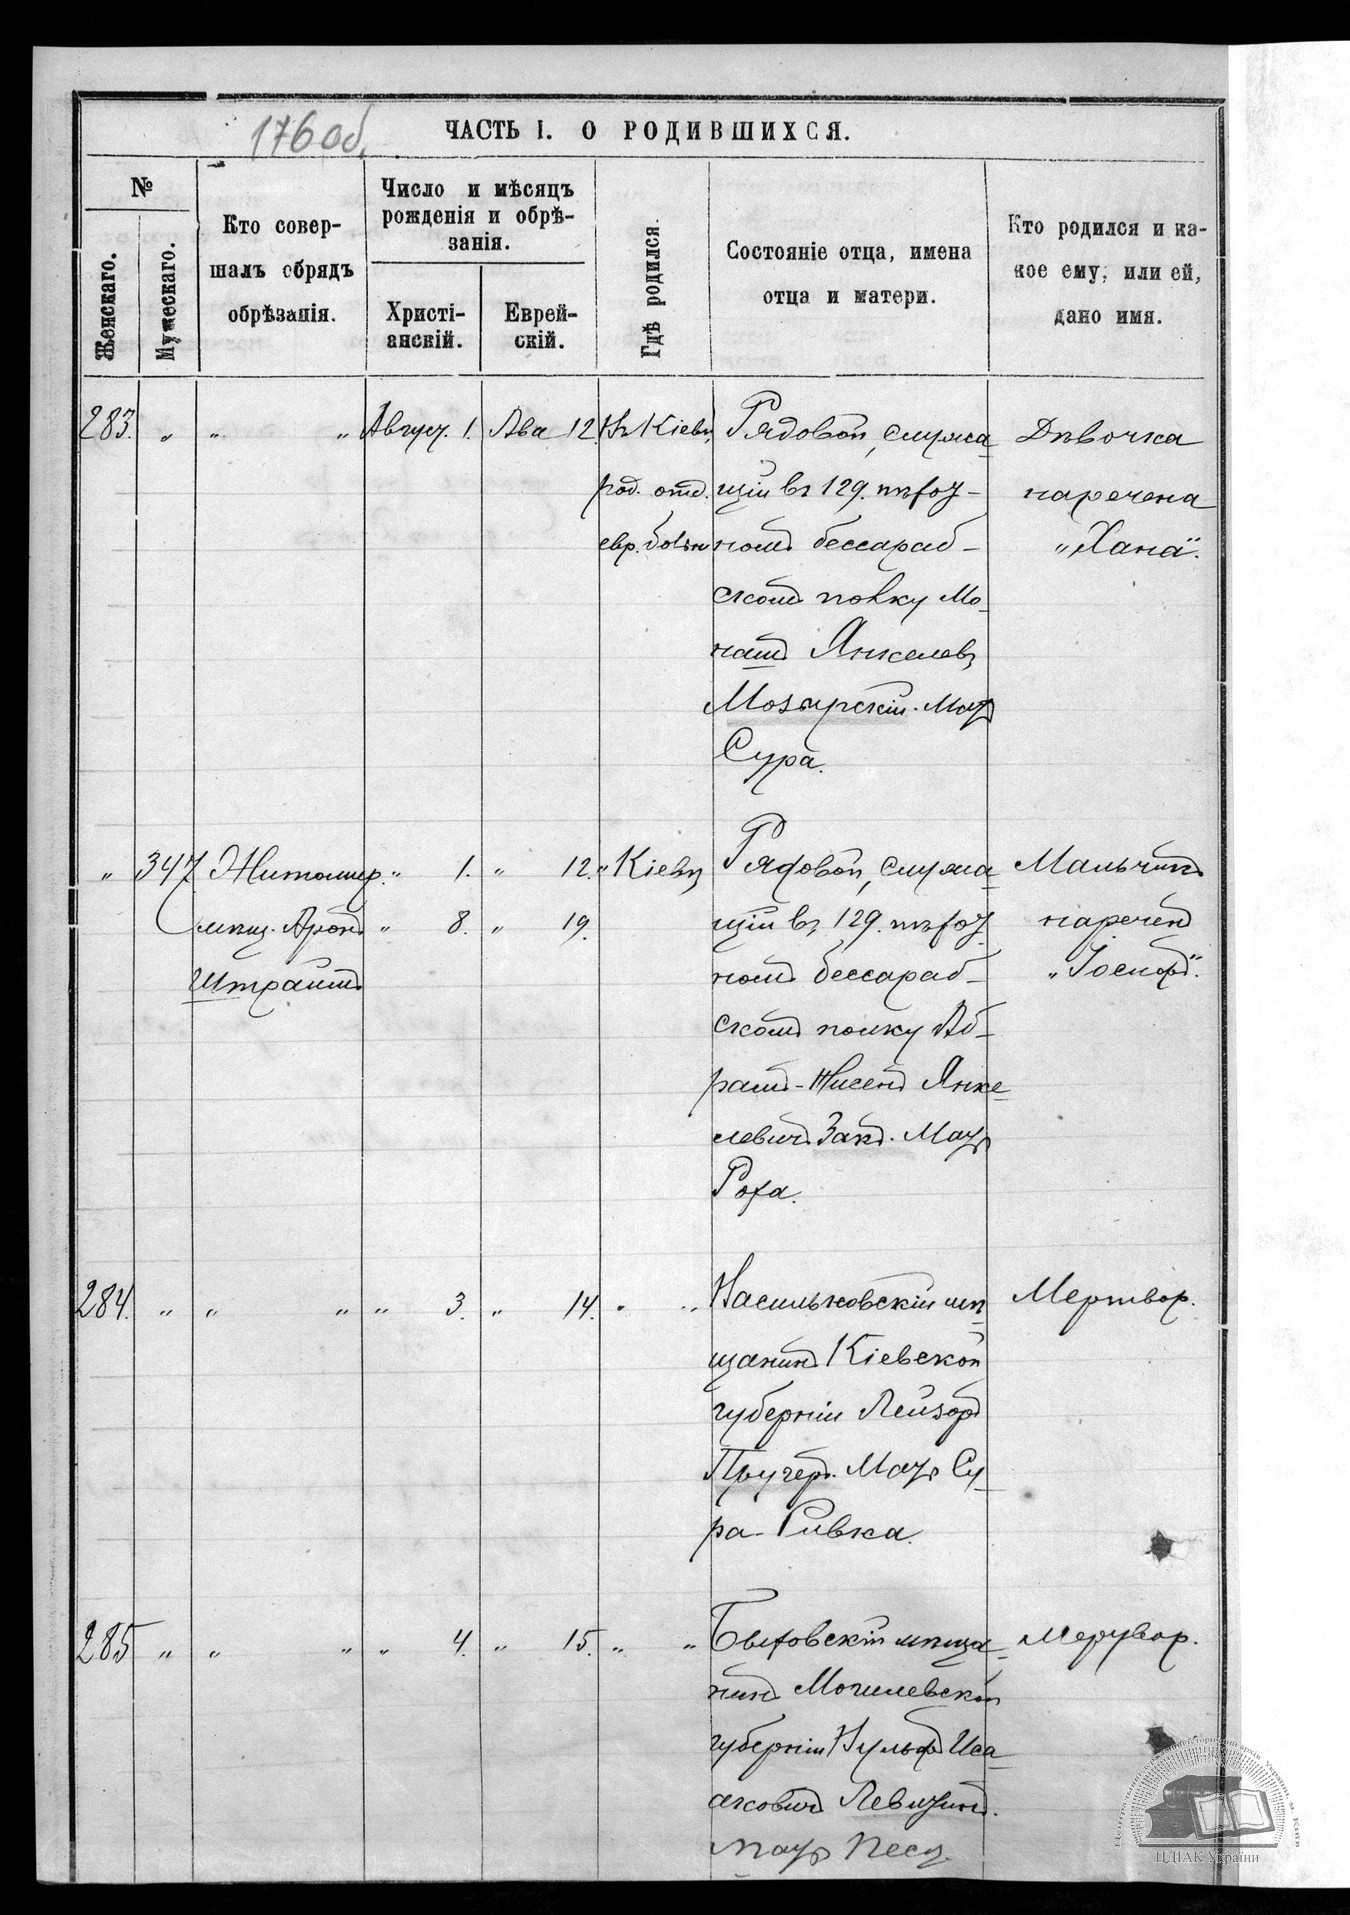 176 об.
ЧАСТЬ I. О РОДИВШИХСЯ.
№
Женскаго.
Мужескаго.
Кто совер-
шалъ обрядъ
обрѣзанія.
Число и мѣсяцъ
рожденія и обрѣ-
занія.
Христі-
анскій.
Еврей-
скій.
Гдѣ родился
Состояніе отца, имена
отца и матери.
Кто родился и ка-
кое ему, или ей,
дано имя.
283. " " " Август. 1. Ава 12. Въ Кіевѣ,
род. отд.
евр. больн
Рядовой, служа-
щій въ 129. пѣхот-
номъ бессараб-
скомъ полку Мо-
нашъ Янкелевъ
Мозырскій. Мать
Сура.
Дѣвочка
наречена
"Хана".
" 347 Житомир.
мѣщ. Аронъ
Штраймъ
" 1. " 12. " Кіевѣ
" 8. " 19.
Рядовой, служа-
щій въ 129. пѣхот-
номъ бессараб-
скомъ полку Аб-
рамъ-Нисенъ Янке-
левичъ Закъ. Мать
Роха.
Мальчикъ
нареченъ
"Іосифъ".
284. " " " " 3. " 14. " "
Васильковскій мѣ-
щанинъ Кіевской
губерніи Лейзоръ
Пручеръ. Мать Су-
ра-Ривка.
Мертвор.
285 " " " " 4. " 15. " "
Быховскій мѣща-
нинъ Могилевской
губерніи Вульфъ Иса-
аковичъ Левитинъ.
Мать Песя.
Мертвор.
ЦДІАК України